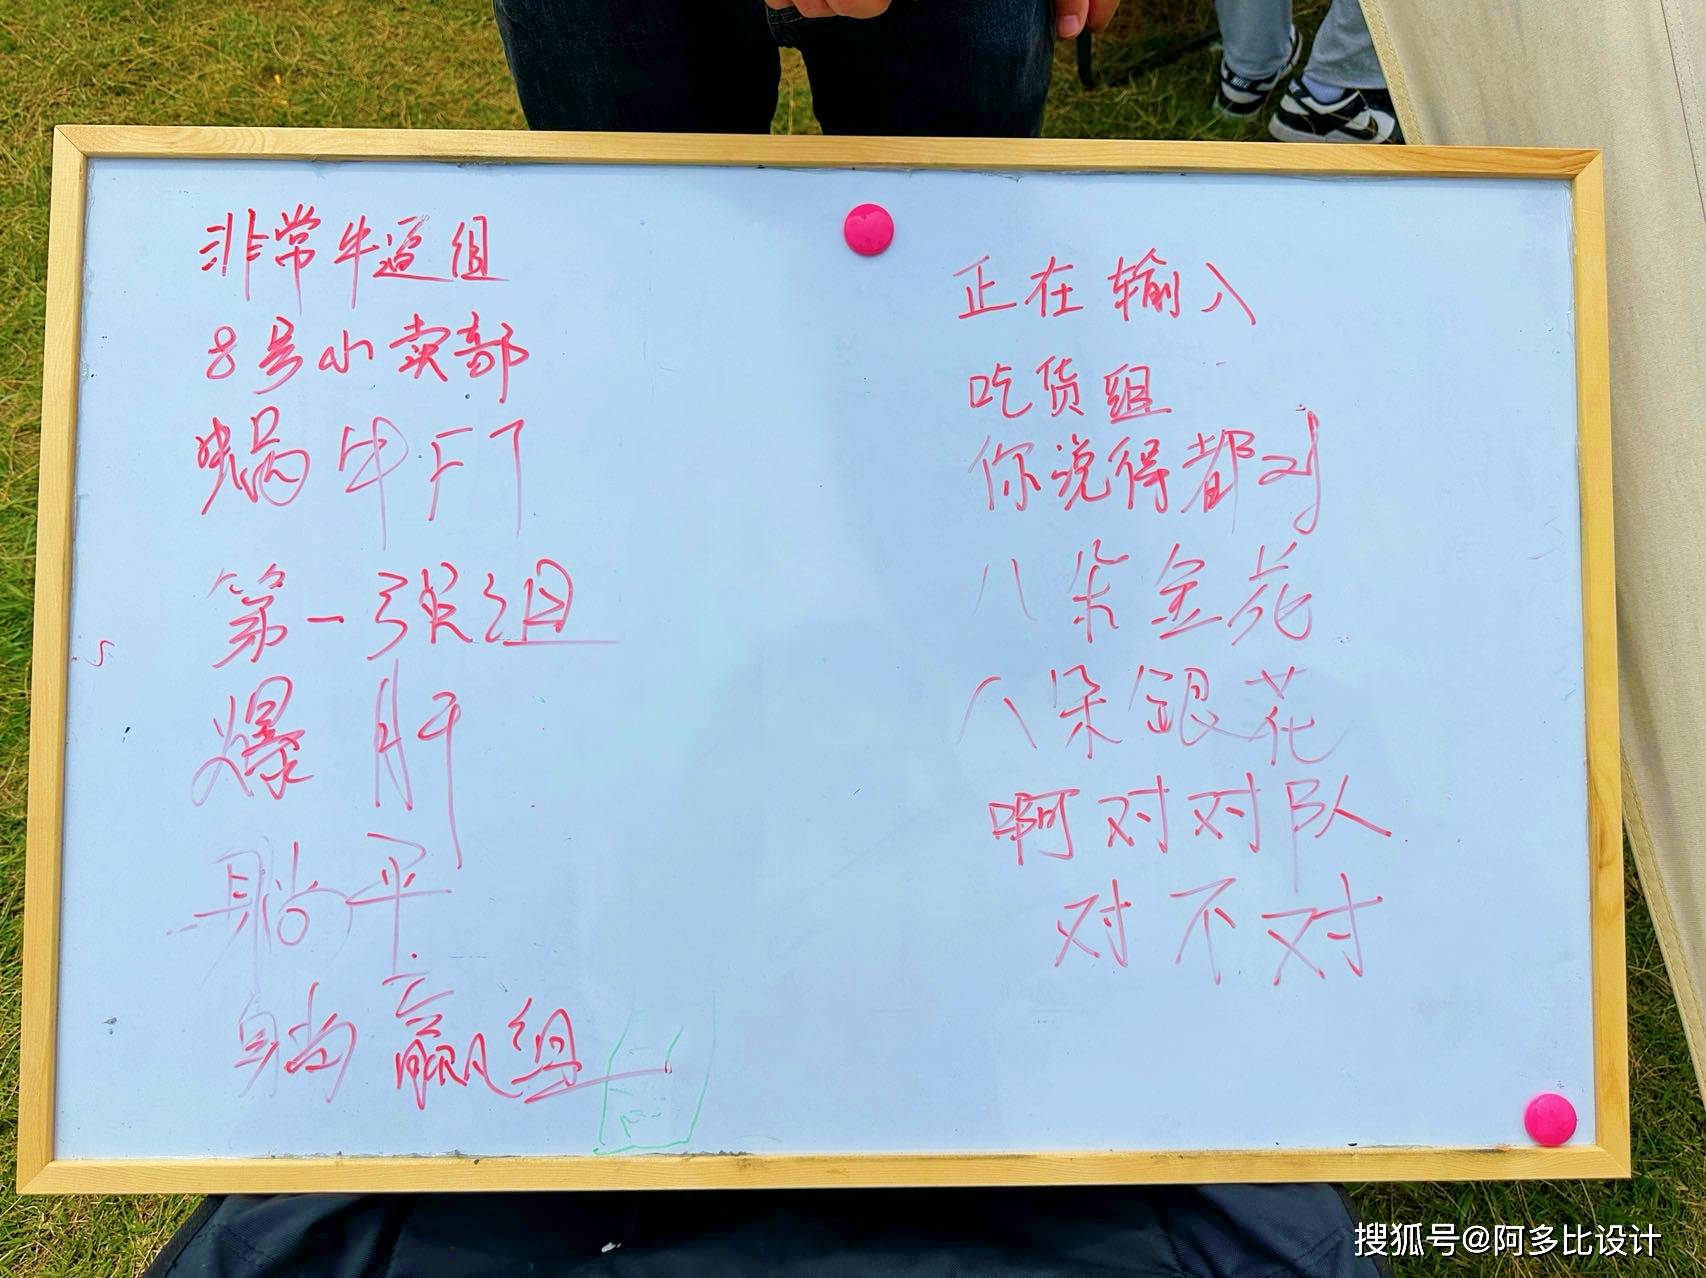 非常牛逼组
8号小卖部
蜗牛FT
第一张组
爆肝
躺平
躺赢组
正在输入
吃货组
你说得都对
八朵金花
八朵銀花
啊对对队
对不对
搜狐号@阿多比设计